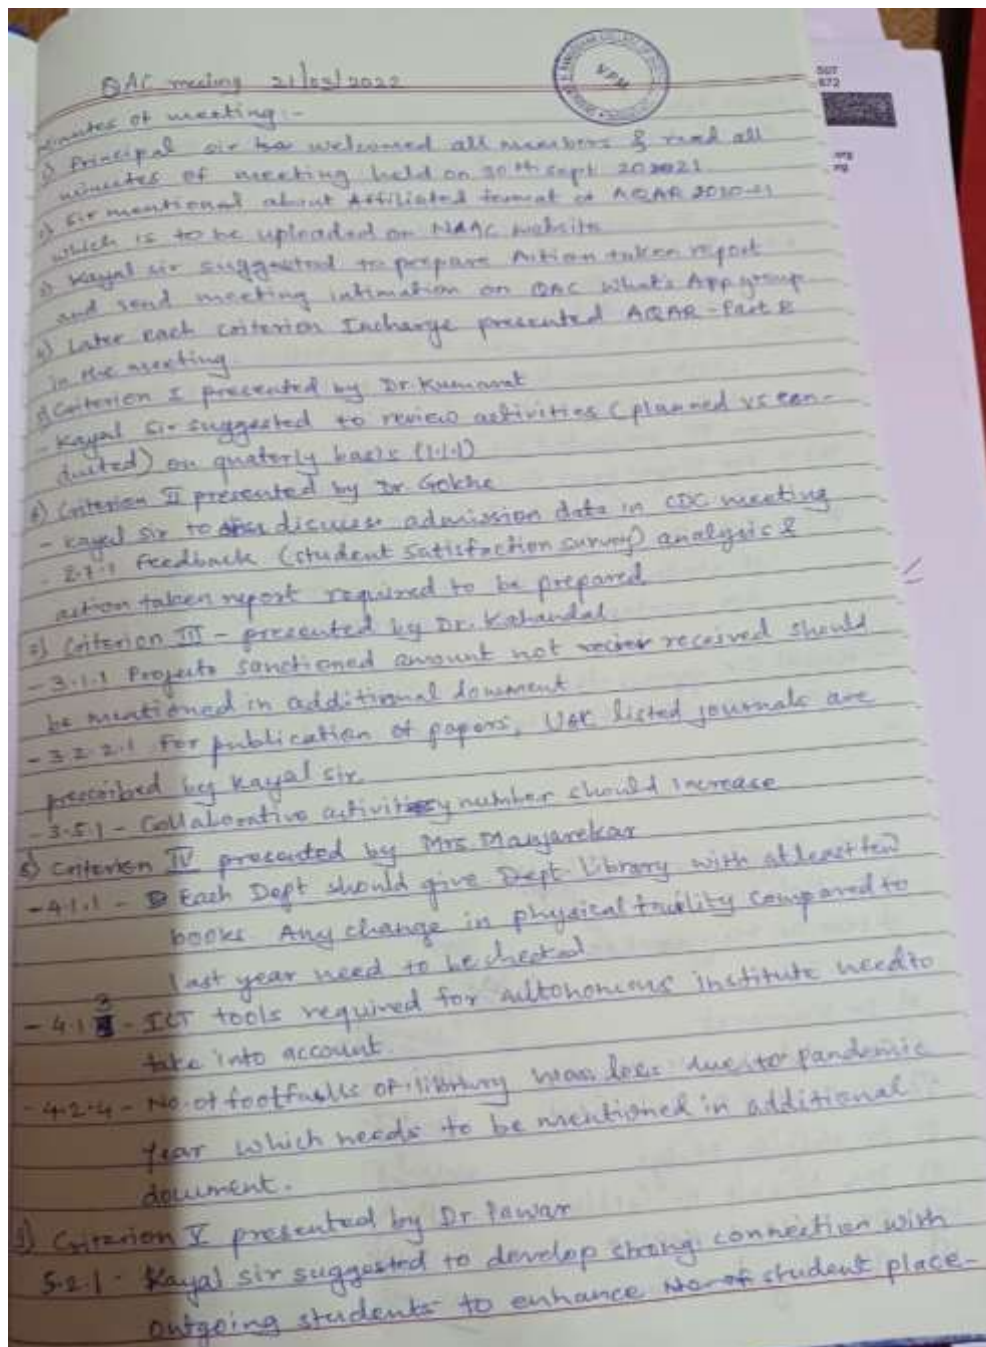 QAC meeting 21/03/2022
VPM
Minutes of meeting:-
1) Principal sir has welcomed all members & read all
minutes of meeting held on 30th sept 202021
2) Sir mentioned about Affiliated format of AQAR 2020-21
which is to be uploaded on NAAC website
3) Kayal sir suggested to prepare Action taken report
and send meeting intimation on QAC What's App group
4) Later each criterion Incharge presented AQAR - Part B
in the meeting.
5) Criterion I presented by Dr. Kumavat
- Kayal Sir suggested to review activities (planned vs con-
ducted) on quaterly basis (1.1.1)
6) Criterion II presented by Dr. Gokhe
- Kayal Sir to discuss admission data in CDC meeting
- 2.7.1 Feedback (student satisfaction survey) analysis &
action taken report required to be prepared
7) Criterion III - presented by Dr. Kahandal
- 3.1.1 Projects sanctioned amount not received should
be mentioned in additional document.
- 3.2.2.1 For publication of papers, listed journals are
prescribed by Kayal sir
- 3.5.1 - Collaborative activity number should increase
8) Criterion IV presented by Mrs. Manjarekar
- 4.1.1 - Each Dept should give Dept. library with atleast ten
books. Any change in physical facility compared to
last year need to be checked
- 4.1.3 - ICT tools required for autonomous institute need to
take into account.
- 4.2.4 - No. of footfalls of library was less due to pandemic
year which needs to be mentioned in additional
document.
9) Criterion V presented by Dr. Pawar
5.2.1 - Kayal sir suggested to develop strong connection with
outgoing students to enhance No of student place-